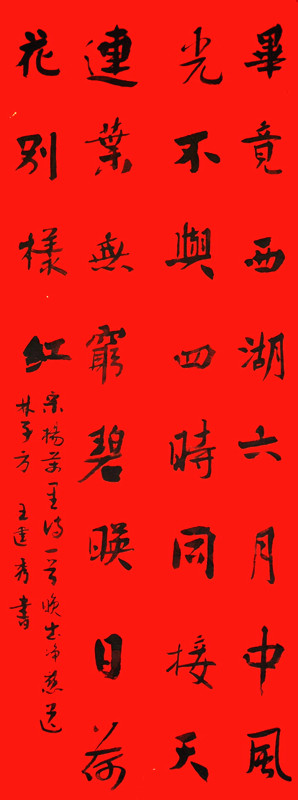 畢竟西湖六月中風
光不與四時同接天
連葉無窮碧暎日荷
花別樣紅
宋楊萬里詩一首曉出净慈送
林子方 王 秀書